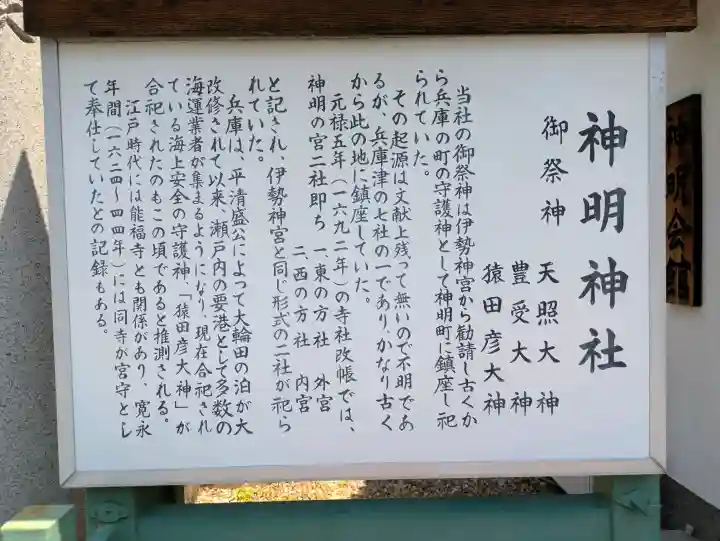 神明神社
御祭神 天照大神
豊受大神
猿田彦大神
当社の御祭神は伊勢神宮から勧請し古くか
ら兵庫の町の守護神として神明町に鎮座し祀
られていた。
その起源は文献上残って無いので不明であ
るが、兵庫津の七社の一でありかなり古く
から此の地に鎮座していた。
元禄五年(一六九二年)の寺社改帳では、
神明の宮二社即ち 一、東の方社 外宮
二、西の方社 内宮
と記され、伊勢神宮と同じ形式の二社が祀ら
れていた。
兵庫は、平清盛公によって大輪田の泊が大
改修されて以来、瀬戸内の要港として多数の
海運業者が集まるようになり、現在合祀され
ている海上安全の守護神、「猿田彦大神」が
合祀されたのもこの頃であると推測される。
江戸時代には能福寺とも関係があり、寛永
年間(一六二四~四四年)には同寺が宮守とし
て奉仕していたとの記録もある。
神明会館